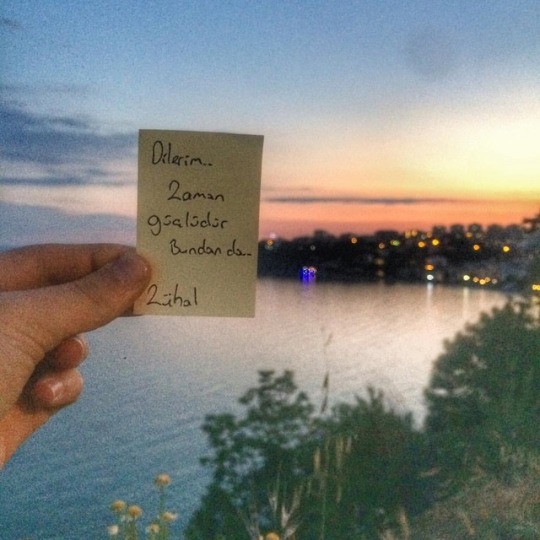 Dilerim..
Zaman
güçlüdür
Bundan da..
Zühal